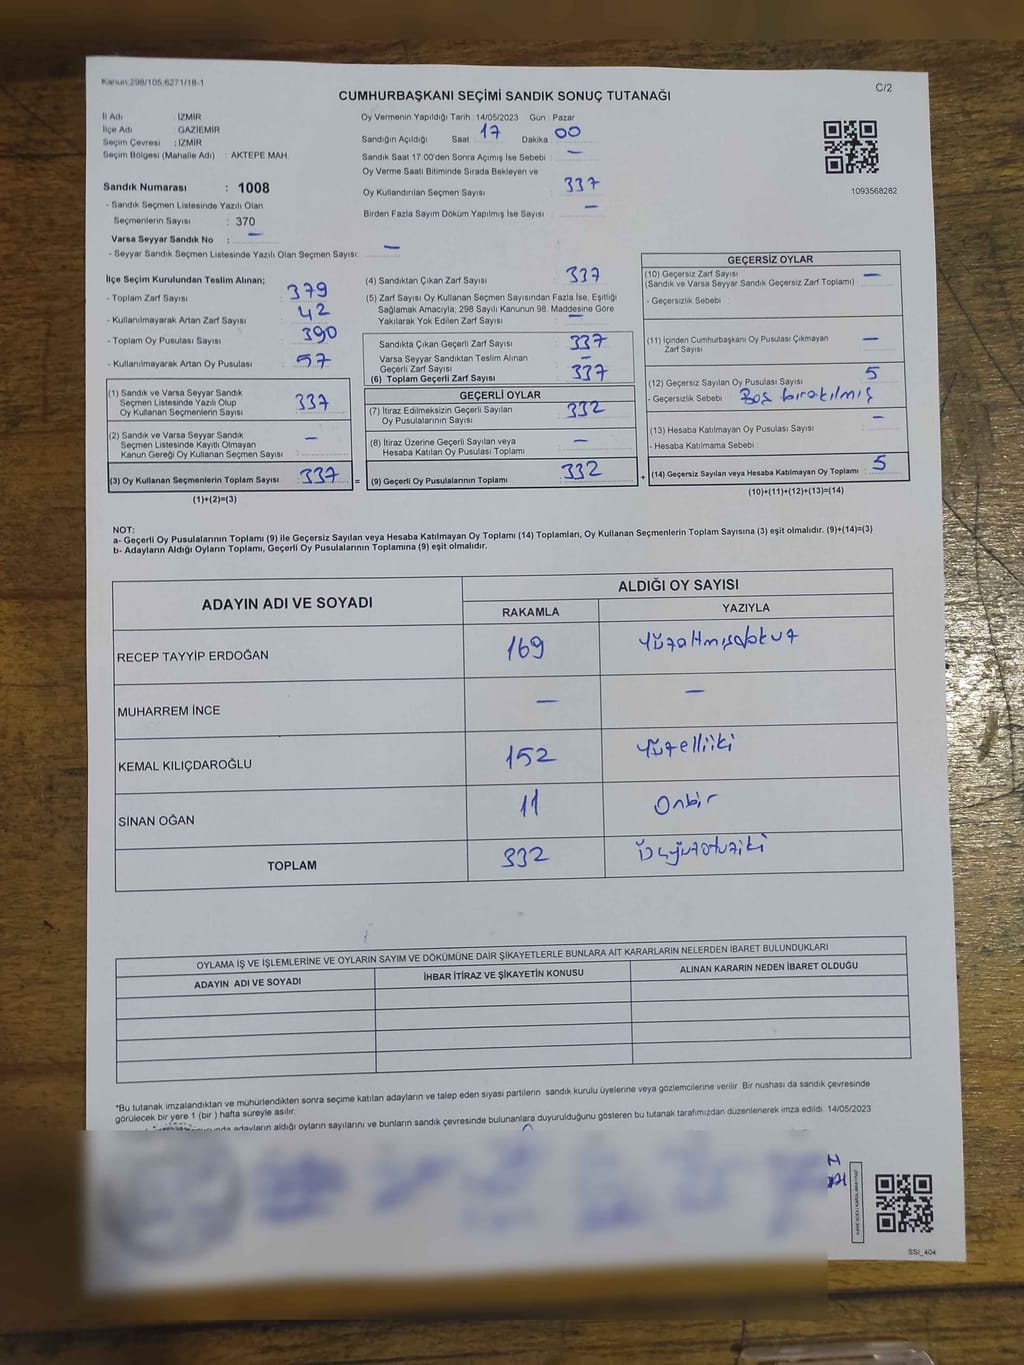 Kanun:298/105,6271/18-1
C/2
CUMHURBAŞKANI SEÇİMİ SANDIK SONUÇ TUTANAĞI
İl Adı : İZMİR
İlçe Adı : GAZİEMİR
Seçim Çevresi : İZMİR
Seçim Bölgesi (Mahalle Adı) : AKTEPE MAH.
Oy Vermenin Yapıldığı Tarih : 14/05/2023 Gün : Pazar
Sandığın Açıldığı Saat 17 Dakika 00
Sandık Saat 17:00'den Sonra Açımış İse Sebebi : —
Oy Verme Saati Bitiminde Sırada Bekleyen ve
Oy Kullandırılan Seçmen Sayısı : 337
Birden Fazla Sayım Döküm Yapılmış İse Sayısı : —
1093568282
Sandık Numarası : 1008
- Sandık Seçmen Listesinde Yazılı Olan
Seçmenlerin Sayısı : 370
Varsa Seyyar Sandık No : —
- Seyyar Sandık Seçmen Listesinde Yazılı Olan Seçmen Sayısı: —
İlçe Seçim Kurulundan Teslim Alınan;
- Toplam Zarf Sayısı : 379
- Kullanılmayarak Artan Zarf Sayısı : 42
- Toplam Oy Pusulası Sayısı : 390
- Kullanılmayarak Artan Oy Pusulası : 57
(1) Sandık ve Varsa Seyyar Sandık
Seçmen Listesinde Yazılı Olup
Oy Kullanan Seçmenlerin Sayısı : 337
(2) Sandık ve Varsa Seyyar Sandık
Seçmen Listesinde Kayıtlı Olmayan
Kanun Gereği Oy Kullanan Seçmen Sayısı : —
(3) Oy Kullanan Seçmenlerin Toplam Sayısı : 337 =
(1)+(2)=(3)
(4) Sandıktan Çıkan Zarf Sayısı : 337
(5) Zarf Sayısı Oy Kullanan Seçmen Sayısından Fazla İse, Eşitliği
Sağlamak Amacıyla; 298 Sayılı Kanunun 98. Maddesine Göre
Yakılarak Yok Edilen Zarf Sayısı : —
Sandıkta Çıkan Geçerli Zarf Sayısı : 337
Varsa Seyyar Sandıktan Teslim Alınan
Geçerli Zarf Sayısı : —
(6) Toplam Geçerli Zarf Sayısı : 337
GEÇERLİ OYLAR
(7) İtiraz Edilmeksizin Geçerli Sayılan
Oy Pusulalarının Sayısı : 332
(8) İtiraz Üzerine Geçerli Sayılan veya
Hesaba Katılan Oy Pusulası Toplamı : —
(9) Geçerli Oy Pusulalarının Toplamı : 332 +
GEÇERSİZ OYLAR
(10) Geçersiz Zarf Sayısı
(Sandık ve Varsa Seyyar Sandık Geçersiz Zarf Toplamı) : —
- Geçersizlik Sebebi :
(11) İçinden Cumhurbaşkanı Oy Pusulası Çıkmayan
Zarf Sayısı : —
(12) Geçersiz Sayılan Oy Pusulası Sayısı : 5
- Geçersizlik Sebebi : Boş bırakılmış
(13) Hesaba Katılmayan Oy Pusulası Sayısı : —
- Hesaba Katılmama Sebebi :
(14) Geçersiz Sayılan veya Hesaba Katılmayan Oy Toplamı : 5
(10)+(11)+(12)+(13)=(14)
NOT:
a- Geçerli Oy Pusulalarının Toplamı (9) ile Geçersiz Sayılan veya Hesaba Katılmayan Oy Toplamı (14) Toplamları, Oy Kullanan Seçmenlerin Toplam Sayısına (3) eşit olmalıdır. (9)+(14)=(3)
b- Adayların Aldığı Oyların Toplamı, Geçerli Oy Pusulalarının Toplamına (9) eşit olmalıdır.
ADAYIN ADI VE SOYADI
ALDIĞI OY SAYISI
RAKAMLA YAZIYLA
RECEP TAYYİP ERDOĞAN 169 Yüzaltmışdokuz
MUHARREM İNCE — —
KEMAL KILIÇDAROĞLU 152 Yüzelliiki
SİNAN OĞAN 11 Onbir
TOPLAM 332 Üçyüzotuziki
OYLAMA İŞ VE İŞLEMLERİNE VE OYLARIN SAYIM VE DÖKÜMÜNE DAİR ŞİKAYETLERLE BUNLARA AİT KARARLARIN NELERDEN İBARET BULUNDUKLARI
ADAYIN ADI VE SOYADI İHBAR İTİRAZ VE ŞİKAYETİN KONUSU ALINAN KARARIN NEDEN İBARET OLDUĞU
*Bu tutanak imzalandıktan ve mühürlendikten sonra seçime katılan adayların ve talep eden siyasi partilerin sandık kurulu üyelerine veya gözlemcilerine verilir. Bir nüshası da sandık çevresinde
görülecek bir yere 1 (bir ) hafta süreyle asılır.
adayların aldığı oyların sayılarını ve bunların sandık çevresinde bulunanlara duyurulduğunu gösteren bu tutanak tarafımızdan düzenlenerek imza edildi. 14/05/2023
SSI_404